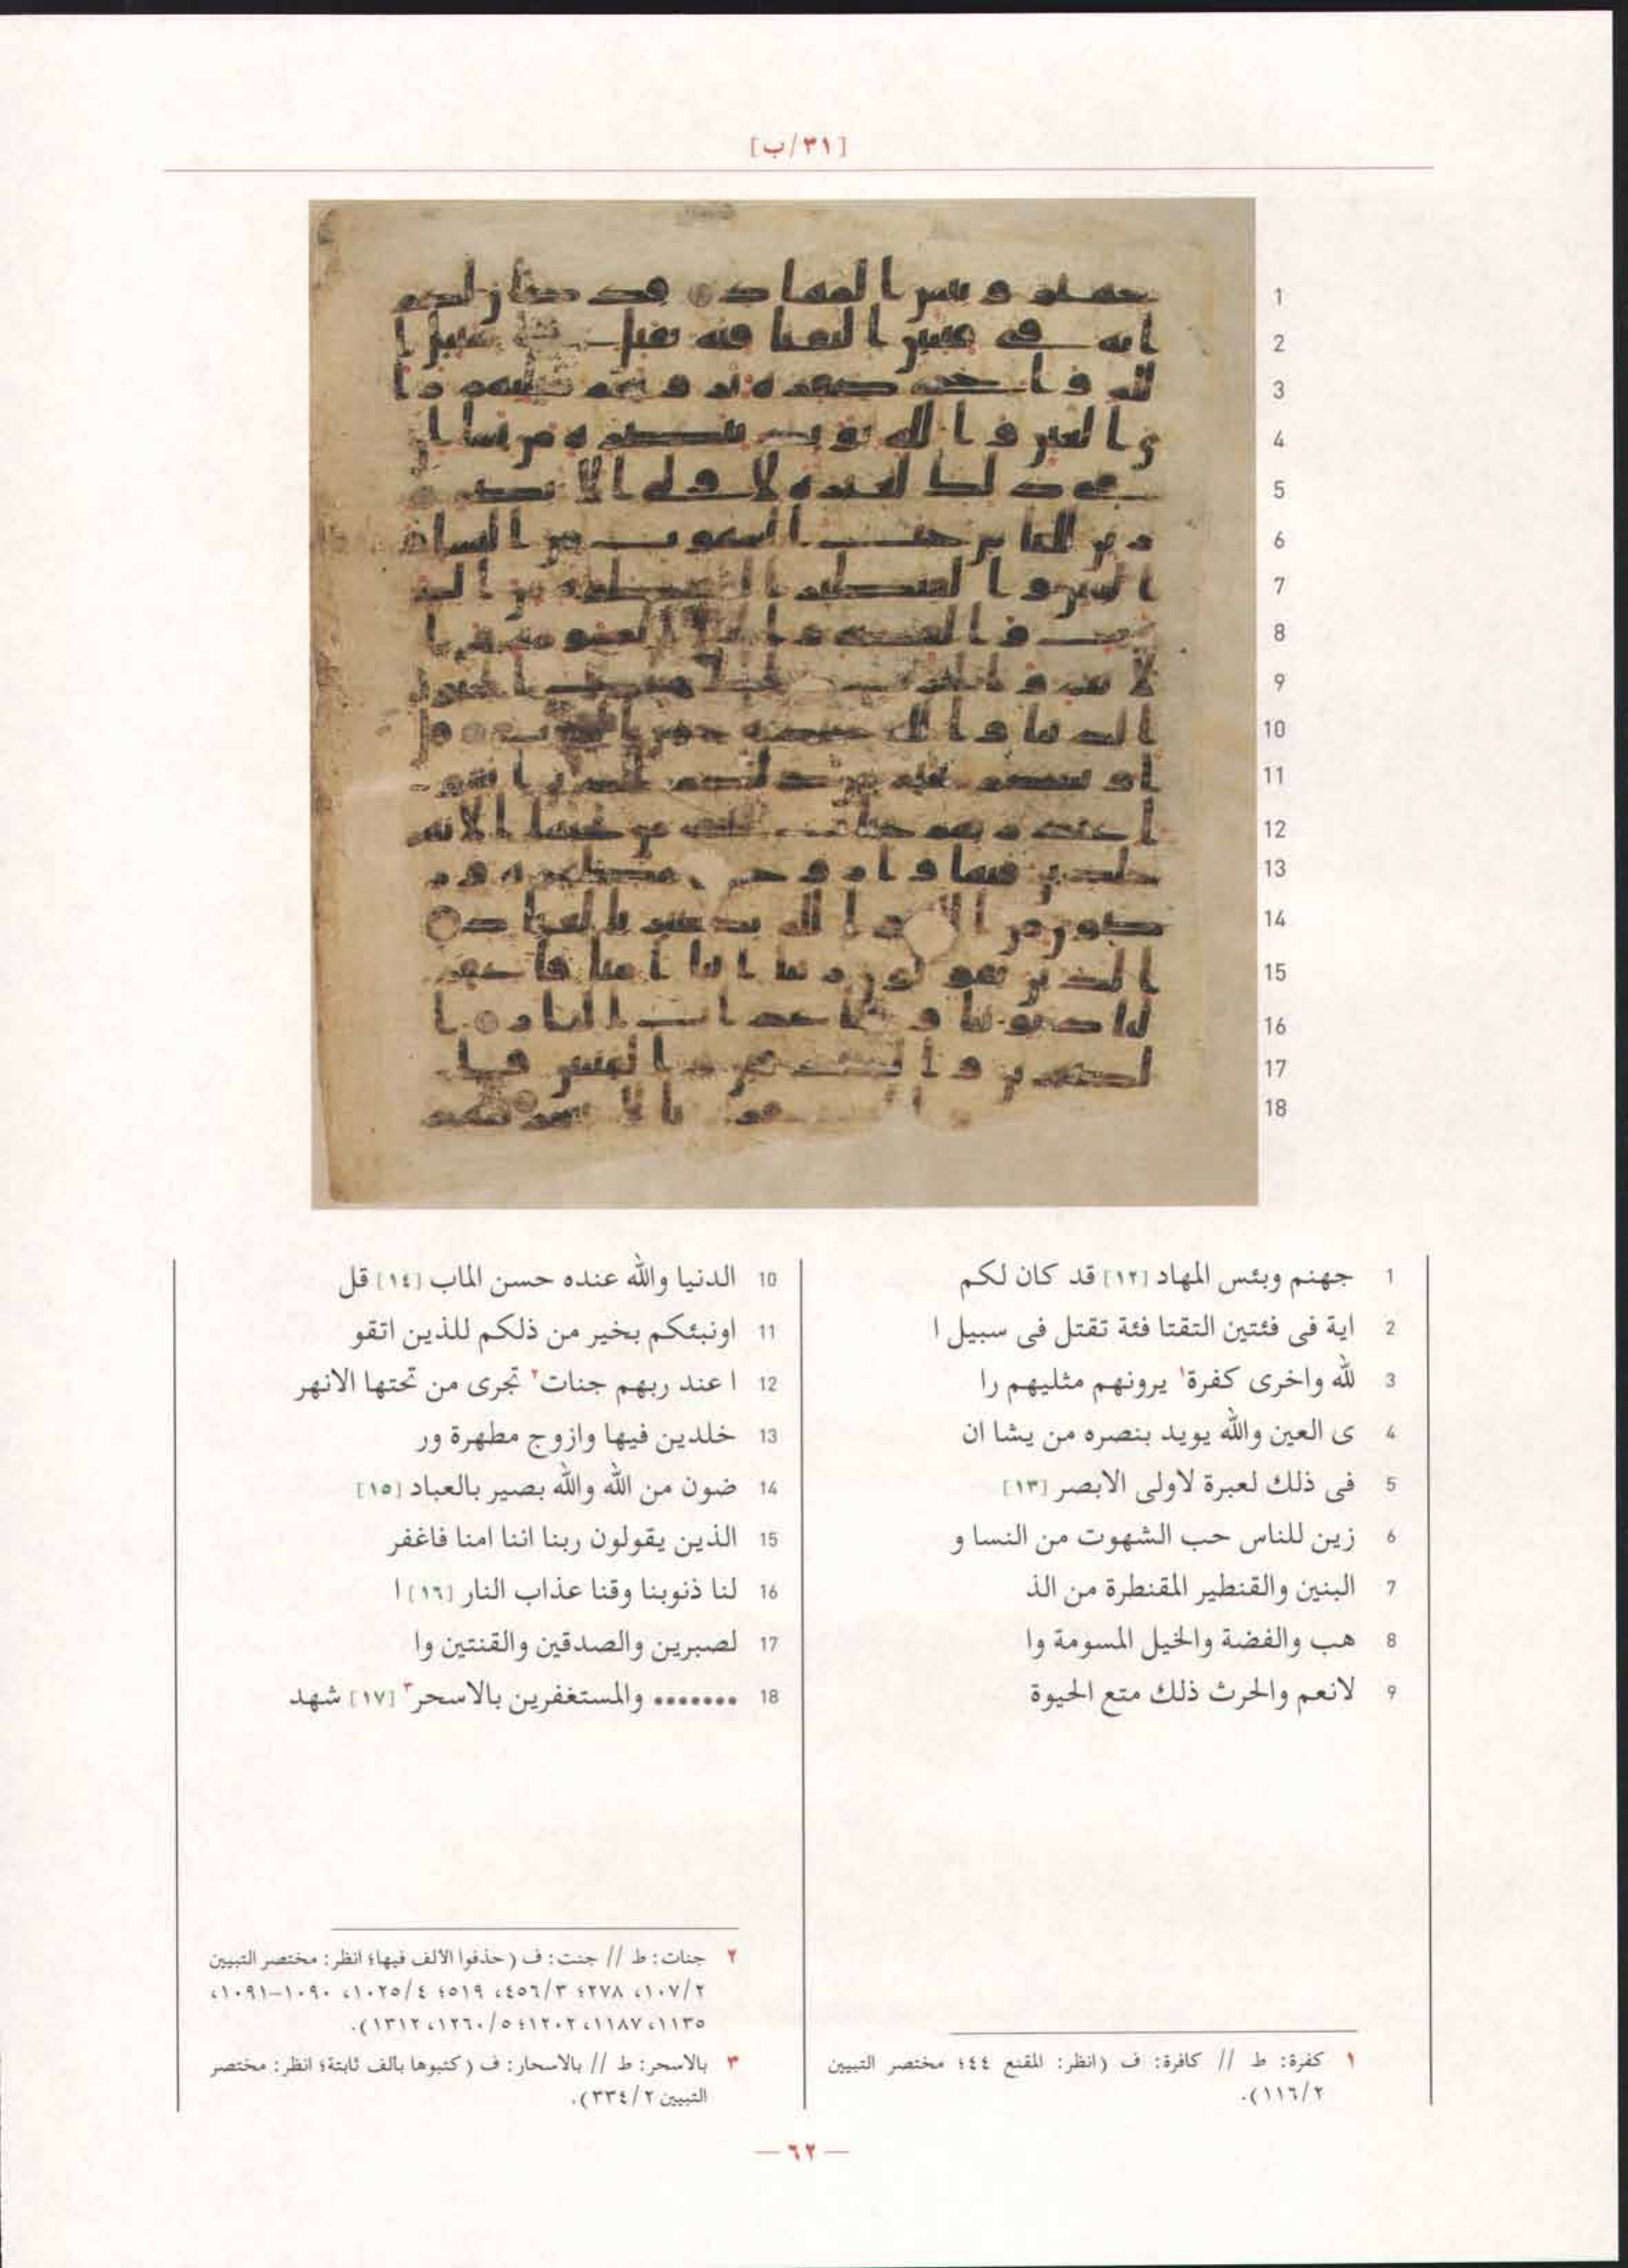 [٣١/ب]
1 جهنم وبئس المهاد [١٢] قد كان لكم
2 اية فى فئتين التقتا فئة تقتل فى سبيل ا
3 لله واخرى كفرة١ يرونهم مثليهم را
4 ى العين والله يويد بنصره من يشا ان
5 فى ذلك لعبرة لاولى الابصر [١٣]
6 زين للناس حب الشهوت من النسا و
7 البنين والقنطير المقنطرة من الذ
8 هب والفضة والخيل المسومة وا
9 لانعم والحرث ذلك متع الحيوة
10 الدنيا والله عنده حسن الماب [١٤] قل
11 اونبئكم بخير من ذلكم للذين اتقو
12 ا عند ربهم جنات٢ تجرى من تحتها الانهر
13 خلدين فيها وازوج مطهرة ور
14 ضون من الله والله بصير بالعباد [١٥]
15 الذين يقولون ربنا اننا امنا فاغفر
16 لنا ذنوبنا وقنا عذاب النار [١٦] ا
17 لصبرين والصدقين والقنتين وا
18 ....... والمستغفرين بالاسحر٣ [١٧] شهد
١ كفرة: ط // كافرة: ف (انظر: المقنع ٤٤؛ مختصر التبيين
٢/١١٦).
٢ جنات: ط // جنت: ف (حذفوا الالف فيها؛ انظر: مختصر التبيين
٢/١٠٧، ٢٧٨؛ ٣/٤٥٦، ٥١٩؛ ٤/١٠٢٥، ١٠٩٠-١٠٩١،
١١٣٥، ١١٨٧، ١٢٠٢؛ ٥/١٢٦٠، ١٣١٢).
٣ بالاسحر: ط // بالاسحار: ف (كتبوها بالف ثابتة؛ انظر: مختصر
التبيين ٢/٣٣٤).
— ٦٢ —